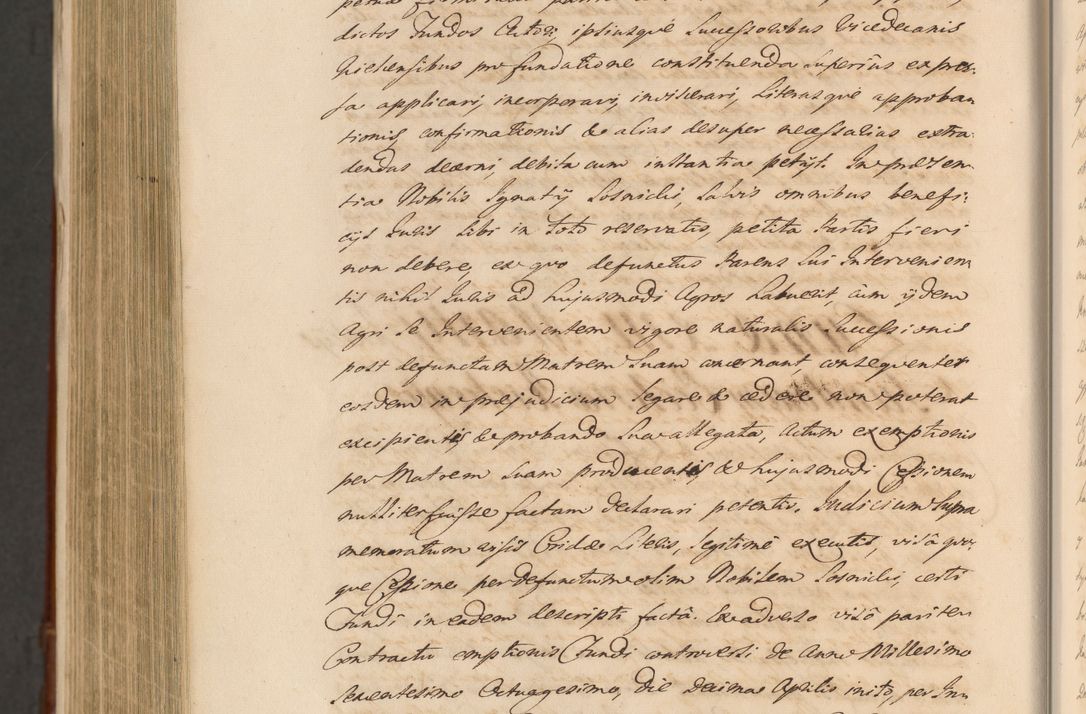 dictos Fundos Actori, ipsiusque Successoribus Vicedecanis
Kielcensibus pro fundatione constituenda superius expres-
sa applicari, incorporari, inviscerari, Literasque approban
tionis, confirmationis & alias desuper necessarias extra-
dendas decerni, debita cum instantia petijt. In præsen-
tia Nobilis Ignatij Sosnicki, salvis omnibus benefi-
cijs Iuris sibi in toto reservatis, petita Partis fieri
non debere, ex quo defunctus Parens sui Intervenien-
tis nihil Iuris ad hujusmodi Agros habuerit, cum ijdem
Agri se Intervenientem vigore naturalis Successionis
post defunctam Matrem Suam concernant, consequenter
eosdem in præjudicium legare & cedere non poterat
excipientis & probando sua allegata, Actum exemptionis
per Matrem suam producentis & hujusmodi Cessionem
nulliter fuisse factam declarari petentis. Iudicium supra
memoratum visis Cridæ Literis, legitime executis, visâ quo-
que Cessione per defunctum olim Nobilem Sosnicki, certi
Fundi in eadem descripti factâ. Ex adverso visô pariter
Contractu emptionis Fundi controversi de Anno Millesimo
Sexcentesimo Octuagesimo, die decima Aprilis inito, per Inn